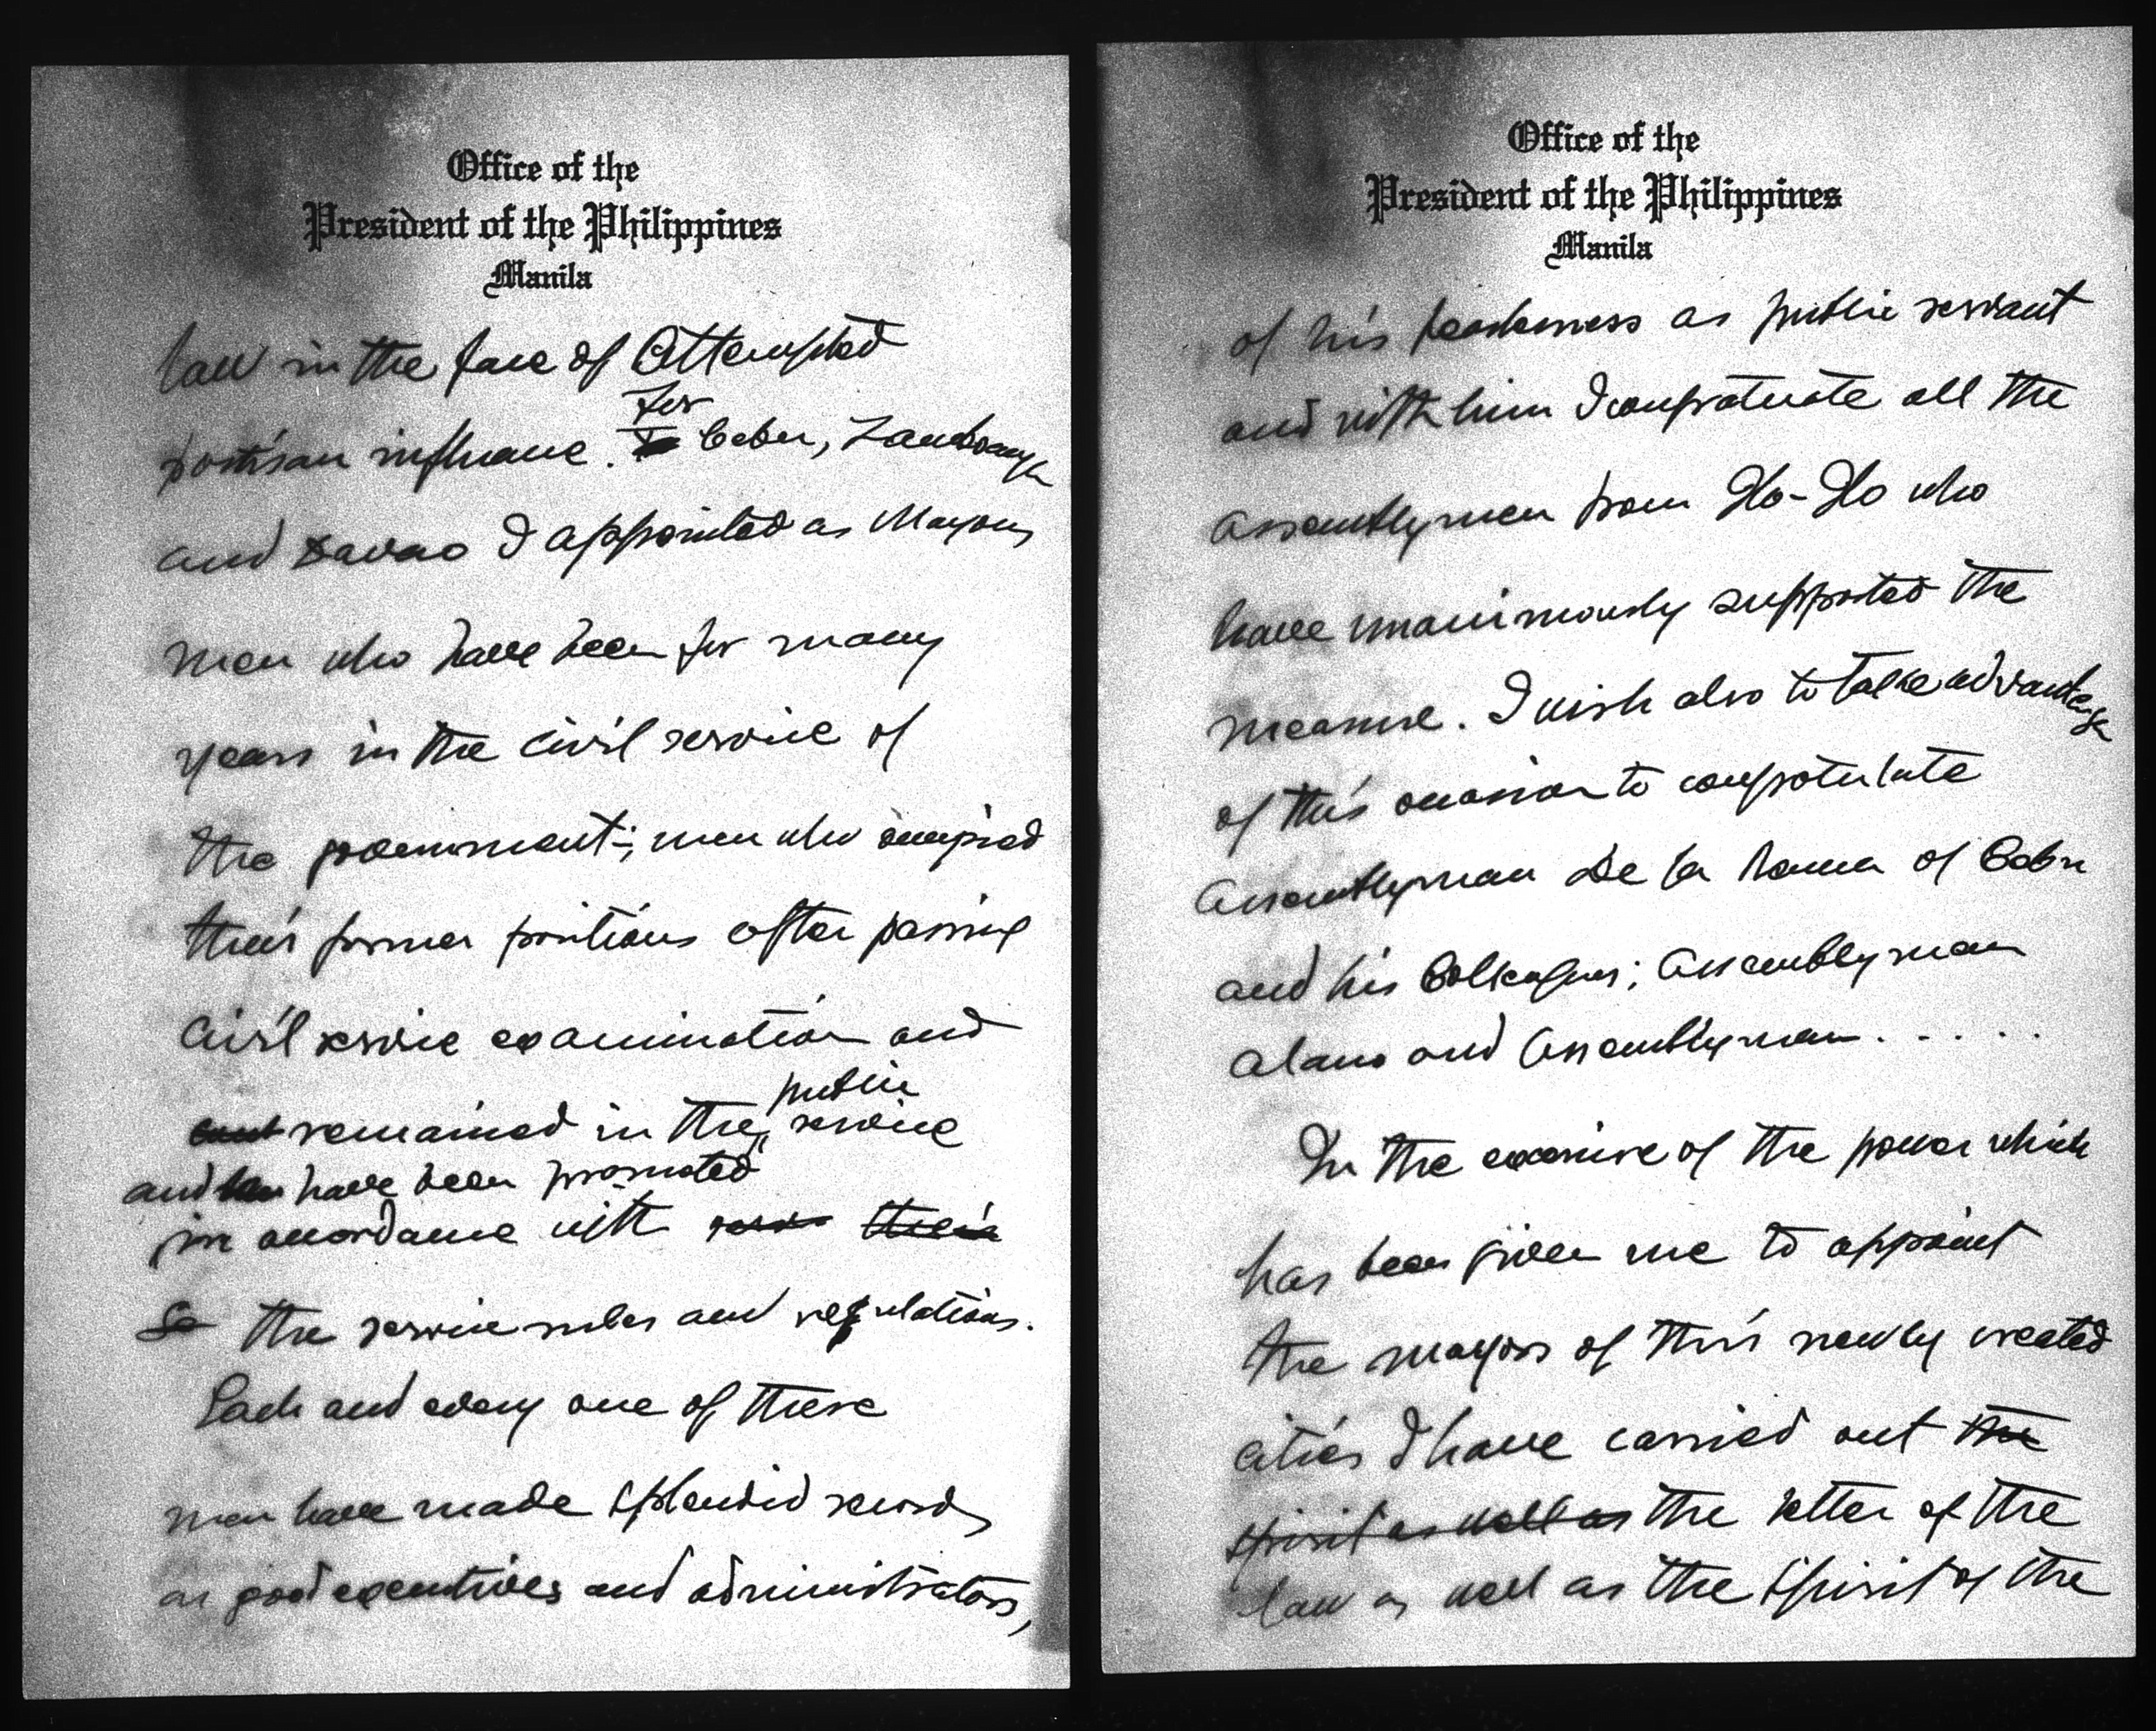 Office of the
President of the Philippines
Manila
law in the face of attempted
For
partisan influence. Cebu, Zamboanga
and Davao I appointed as Mayors
men who have been for many
years in the civil service of
the government; men who occupied
their former positions after passing
civil service examination and
public
remained in the service
and have been promoted
in accordance with their
the service rules and regulations.
Each and every one of these
men have made splendid records
as good executives and administrators,
Office of the
President of the Philippines
Manila
of his as public servant
and with him I congratulate all the
assemblymen from Ilo-Ilo who
have unanimously supported the
measure. I wish also to take advantage
of this occasion to congratulate
Assemblyman de la Rama of Cebu
and his Colleagues; Assemblyman
Alano and Assemblyman . . . . .
In the exercise of the power which
has been given me to appoint
the mayors of this newly created
cities I have carried out the
spirit as well as the letter of the
law as well as the spirit of the